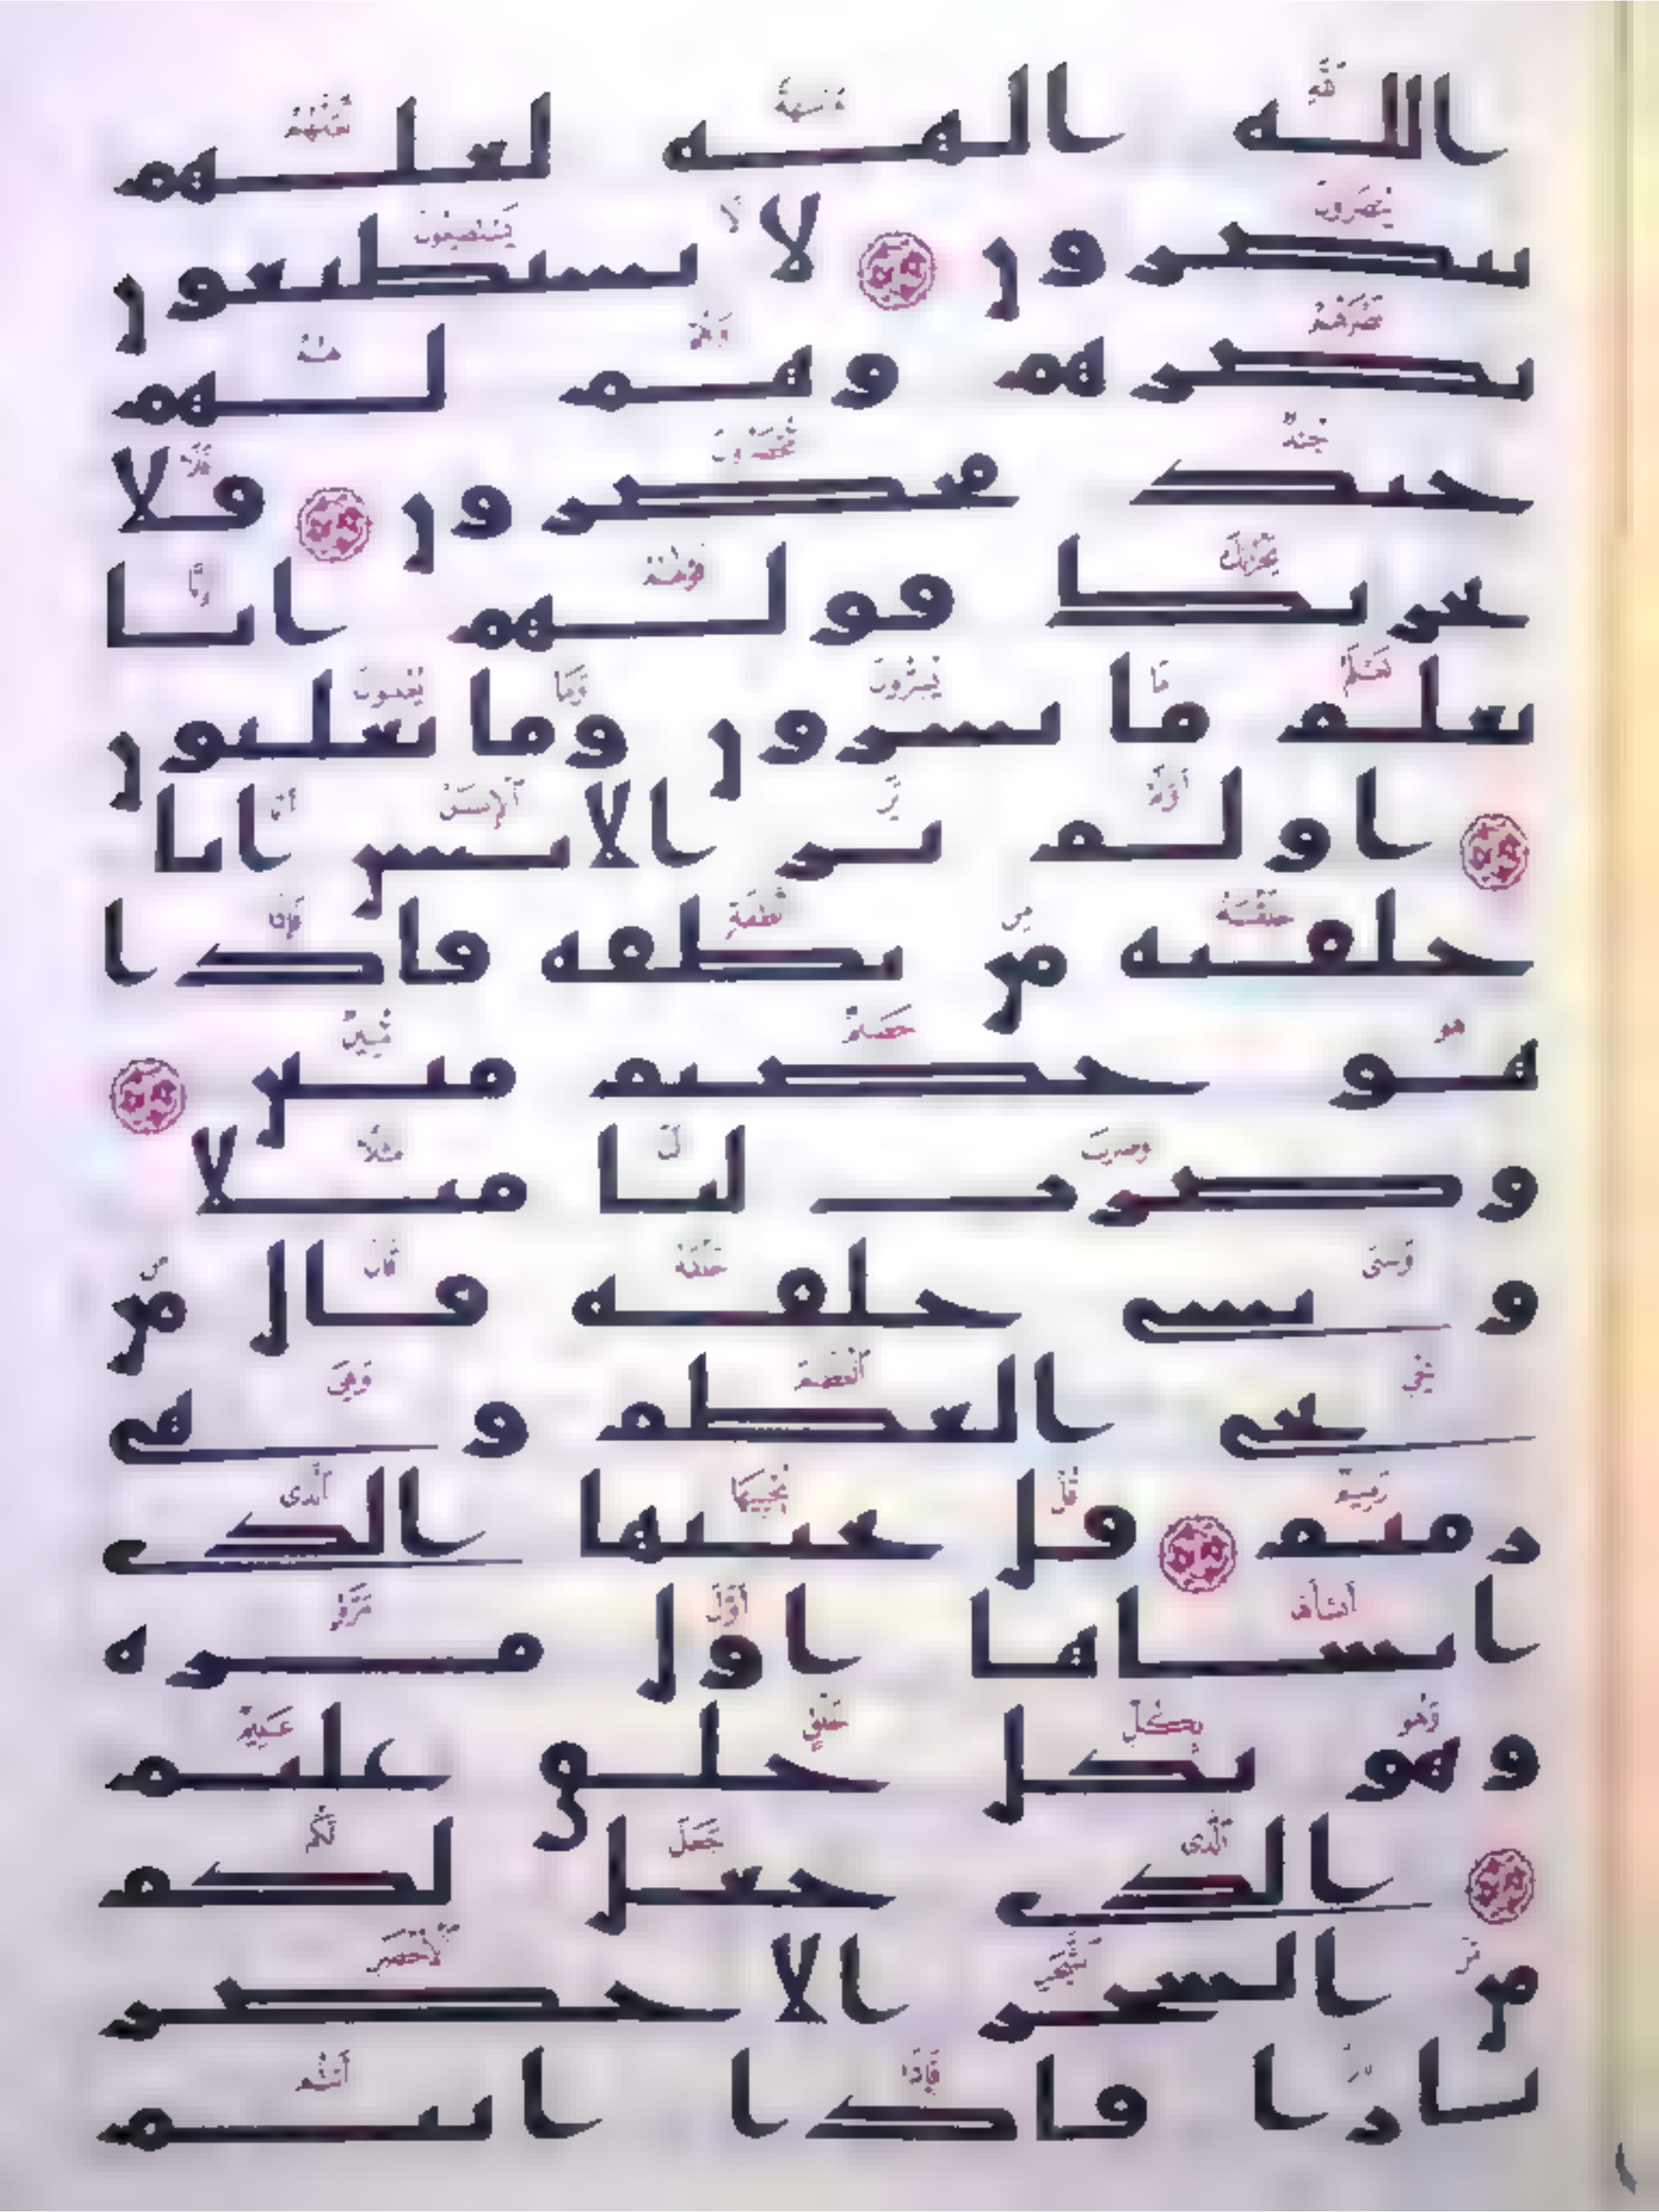 الله الهة لعلهم
ينصرون لا يستطيعون
نصرهم وهم لهم
جند محضرون فلا
يحزنك قولهم انا
نعلم ما يسرون وما يعلنون
اولم ير الانسن انا
خلقنه من نطفة فاذا
هو خصيم مبين
وضرب لنا مثلا
ونسى خلقه قال من
يحى العظم وهى
رميم قل يحييها الذى
انشاها اول مرة
وهو بكل خلق عليم
الذى جعل لكم
من الشجر الاخضر
نارا فاذا انتم